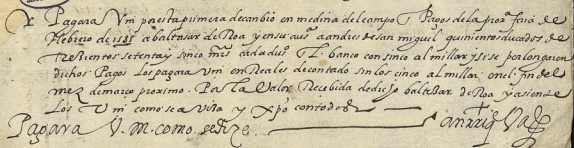 Pagara Vm por esta primera de cambio en medina del campo Pagos de la proxa feria de
febrero de 1585 a baltasar de Roa y en su aus a andres de san miguel quinientos ducados de
trezientos setenta y sinco mrs cada duo en banco con sinco al millar y si se prolongaren
dichos Pagos los pagara Vm en Reales de contado sin los cinco al millar en el fin del
mez de março proximo. Por la Valor Recebida de dicho baltasar de Roa y asiente
Los Vm como se avisa y Xpo con todos
Pagara V. m. como se dize